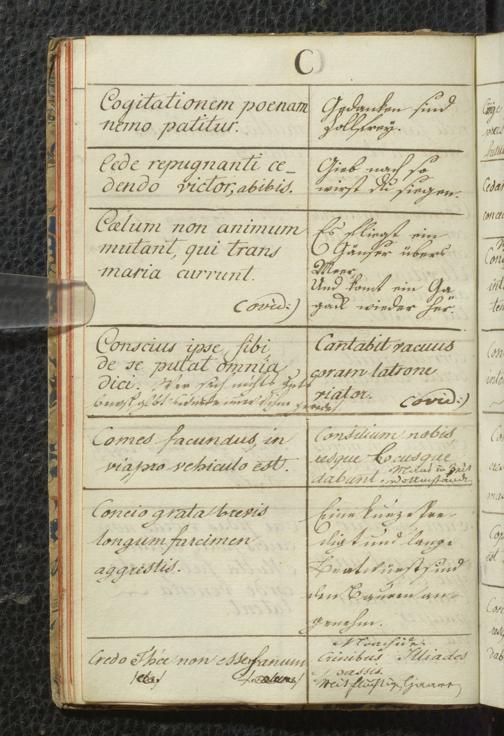 C
Cogitationem poenam
nemo patitur.
Gedanken sind
zollfrey.
Cede repugnanti ce_
dendo victor, abibis.
Gieb nach so
wirst du siegen.
Cælum non animum
mutant, qui trans
maria currunt.
(Ovid:)
Es fliegt ein
Gänser übers
Meer,
Und komt ein Ga
gack wieder her.
Conscius ipse sibi
de se putat omnia
dici. Wer sich nichts
Cantabit vacuus
coram latrone
viator. (Ovid:)
Comes facundus, in
via, pro vehiculo est.
Consilium nobis
resque locusque
dabunt.
Concio grata brevis
longum farcimen
aggrestis.
Eine kurze Pre-
digt und lange
Bratwürst sind
den Bauern an-
genehm.
Credo Thée non esse fanum
Crinibus Illiades
passis.